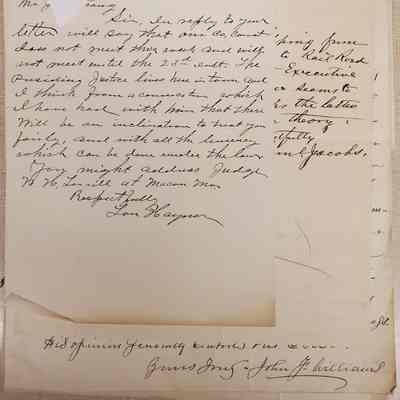 Sir, In reply to your
letter will say that our Co, Court
does not meet this week and will
not meet until the 23rd inst. The
presiding Justice lives here in town and
I think from a conversation which
I have had with him that there
Will be an inclination to treat you
fairly, and with all the leniency
which can be done under the law
You might address Judge
at Macon Mo,
Respectfully
ping from
to Rail Road
Executive
seems to
the latter
theory.
Jacobs.
His opinion generally
Yours truly John F. Williams